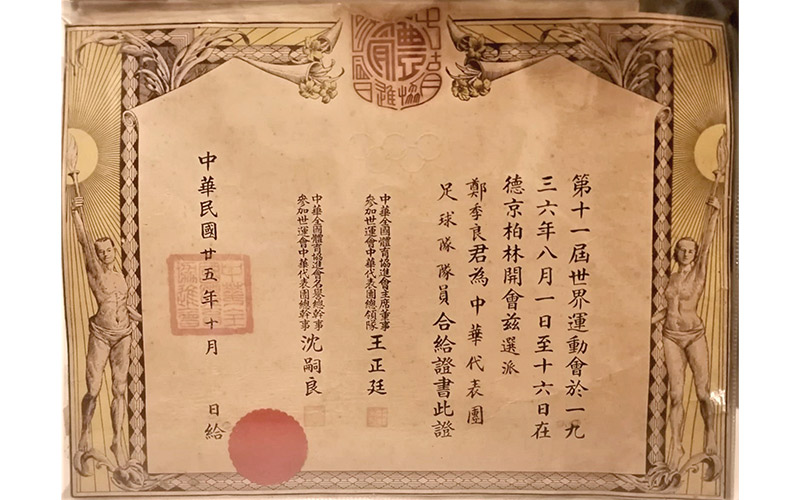 第十一屆世界運動會於一九
三六年八月一日至十六日在
德京柏林開會兹選派
鄭季良君為中華代表團
足球隊隊員合給證書此證
中華全國體育協進會主席董事
參加世運會中華代表團總領隊
王正廷
中華全國體育協進會名譽總幹事
參加世運會中華代表團總幹事
沈嗣良
中華民國廿五年十月 日給